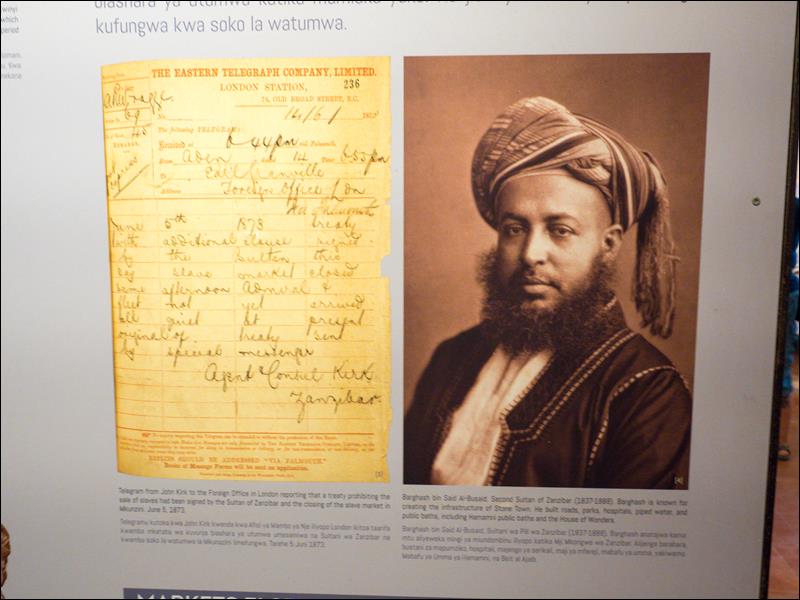 kufungwa kwa soko la watumwa.
which
period
THE EASTERN TELEGRAPH COMPANY, LIMITED.
LONDON STATION,
236
75, OLD BROAD STREET, E.C.
No. 14/6/ 187
The following TELEGRAM:
Received at 6.44pm via Falmouth.
From Aden date 14 Time 6.55pm
To Earl Granville
Address Foreign Office Ldn
June 5th 1873 treaty
with additional clause signed
by the Sultan this
day slave market closed
same afternoon Admiral &
fleet not yet arrived
all quiet at present
original of treaty sent
by special messenger
Agent & Consul Kirk
Zanzibar.
REPLIES SHOULD BE ADDRESSED "VIA FALMOUTH."
Books of Message Forms will be sent on application.
Telegram from John Kirk to the Foreign Office in London reporting that a treaty prohibiting the
sale of slaves had been signed by the Sultan of Zanzibar and the closing of the slave market in
Mkunzini. June 5, 1873.
Telegramu kutoka kwa John Kirk kwenda kwa Afisi ya Mambo ya Nje iliyopo London ikitoa taarifa
kwamba mkataba wa kuvunja biashara ya utumwa umesainiwa na Sultani wa Zanzibar na
kwamba soko la watumwa la Mkunazini limefungwa. Tarehe 5 Juni 1873.
Barghash bin Said Al-Busaid, Second Sultan of Zanzibar (1837-1888). Barghash is known for
creating the infrastructure of Stone Town. He built roads, parks, hospitals, piped water, and
public baths, including Hamamni public baths and the House of Wonders.
Barghash bin Said Al-Busaid, Sultani wa Pili wa Zanzibar (1837-1888). Barghash anatajwa kama
mtu aliyeweka mingi ya miundombinu iliyopo katika Mji Mkongwe wa Zanzibar. Alijenga barabara,
bustani za mapumziko, hospitali, majengo ya serikali, maji ya mfereji, mabafu ya umma, yakiwemo
Mabafu ya Umma ya Hamamni, na Beit al Ajaib.